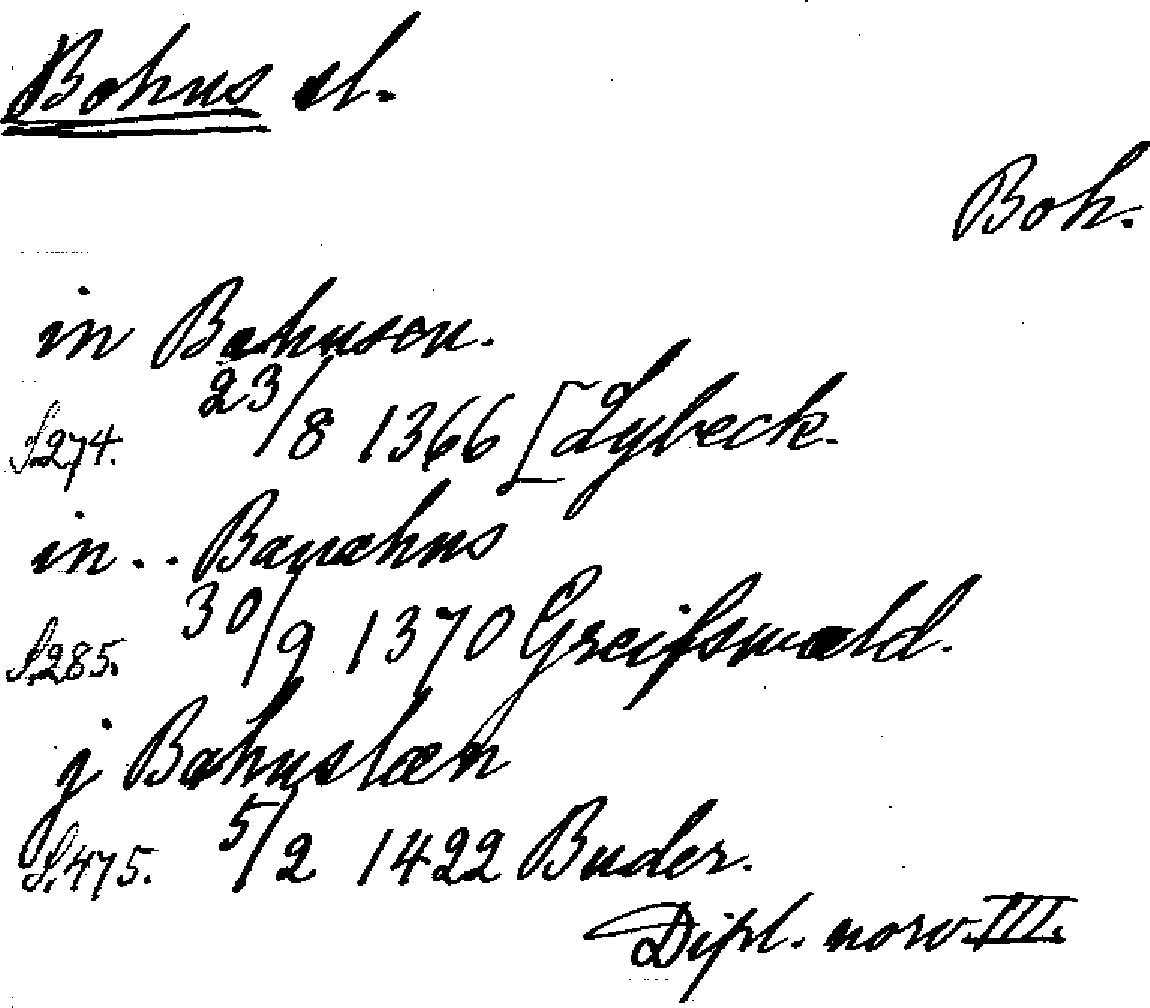 Bohus sl.
Boh.
in Bahusen.
S.274. 23/8 1366 [Lybeck.
in .. Bauahus
S.285. 30/9 1370 Greifswald.
j Bahuslæn
S.475. 5/2 1422 Buder.
Dipl. norv. III.